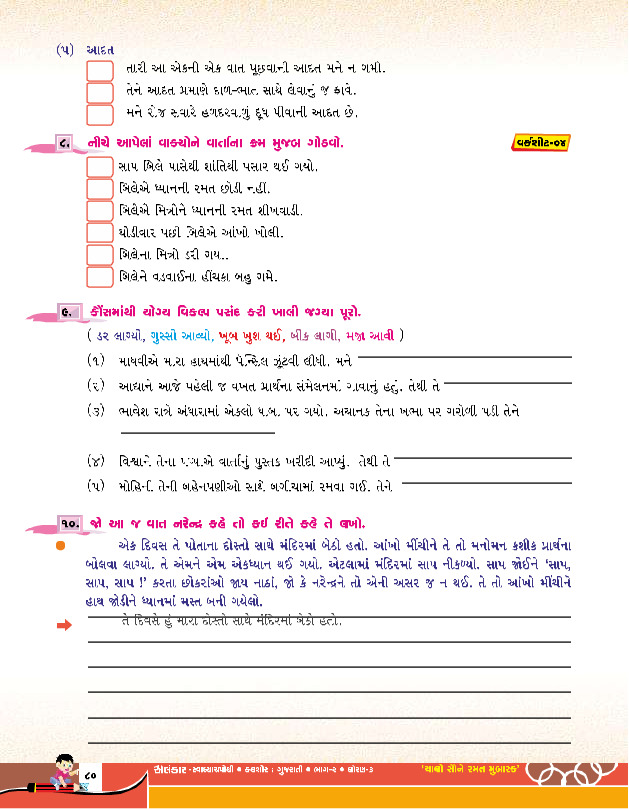 (૫) આદત
તારી આ એકની એક વાત પૂછવાની આદત મને ન ગમી.
તેને આદત પ્રમાણે દાળ-ભાત સાથે લેવાનું જ ફાવે.
મને રોજ સવારે હળદરવાળું દૂધ પીવાની આદત છે.
૮. નીચે આપેલાં વાક્યોને વાર્તાના ક્રમ મુજબ ગોઠવો.
વર્કશીટ-૦૪
સાપ બિલે પાસેથી શાંતિથી પસાર થઈ ગયો.
બિલેએ ધ્યાનની રમત છોડી નહીં.
બિલેએ મિત્રોને ધ્યાનની રમત શીખવાડી.
થોડીવાર પછી બિલેએ આંખો ખોલી.
બિલેના મિત્રો ડરી ગયા.
બિલેને વડવાઈના હીંચકા બહુ ગમે.
૯. કૌંસમાંથી યોગ્ય વિકલ્પ પસંદ કરી ખાલી જગ્યા પૂરો.
( ડર લાગ્યો, ગુસ્સો આવ્યો, ખૂબ ખુશ થઈ, બીક લાગી, મજા આવી )
(૧) માધવીએ મારા હાથમાંથી પેન્સિલ ઝૂંટવી લીધી. મને
(૨) આદ્યાને આજે પહેલી જ વખત પ્રાર્થના સંમેલનમાં ગાવાનું હતું. તેથી તે
(૩) ભાવેશ રાત્રે અંધારામાં એકલો ધાબા પર ગયો. અચાનક તેના ખભા પર ગરોળી પડી તેને
(૪) વિશ્વાને તેના પપ્પાએ વાર્તાનું પુસ્તક ખરીદી આપ્યું. તેથી તે
(૫) મોહિની તેની બહેનપણીઓ સાથે બગીચામાં રમવા ગઈ. તેને
૧૦. જો આ જ વાત નરેન્દ્ર કહે તો કઈ રીતે કહે તે લખો.
એક દિવસ તે પોતાના દોસ્તો સાથે મંદિરમાં બેઠો હતો. આંખો મીંચીને તે તો મનોમન કશીક પ્રાર્થના
બોલવા લાગ્યો. તે એમને એમ એકધ્યાન થઈ ગયો. એટલામાં મંદિરમાં સાપ નીકળ્યો. સાપ જોઈને ‘સાપ,
સાપ, સાપ !’ કરતા છોકરાંઓ જાય નાઠાં, જો કે નરેન્દ્રને તો એની અસર જ ન થઈ. તે તો આંખો મીંચીને
હાથ જોડીને ધ્યાનમાં મસ્ત બની ગયેલો.
તે દિવસે હું મારા દોસ્તો સાથે મંદિરમાં બેઠો હતો.
૮૦
અલંકાર -સ્વાધ્યાયપોથી ● કલશોર : ગુજરાતી ● ભાગ-૨ ● ધોરણ-૩
‘ચાલો સૌને રમત મુબારક’